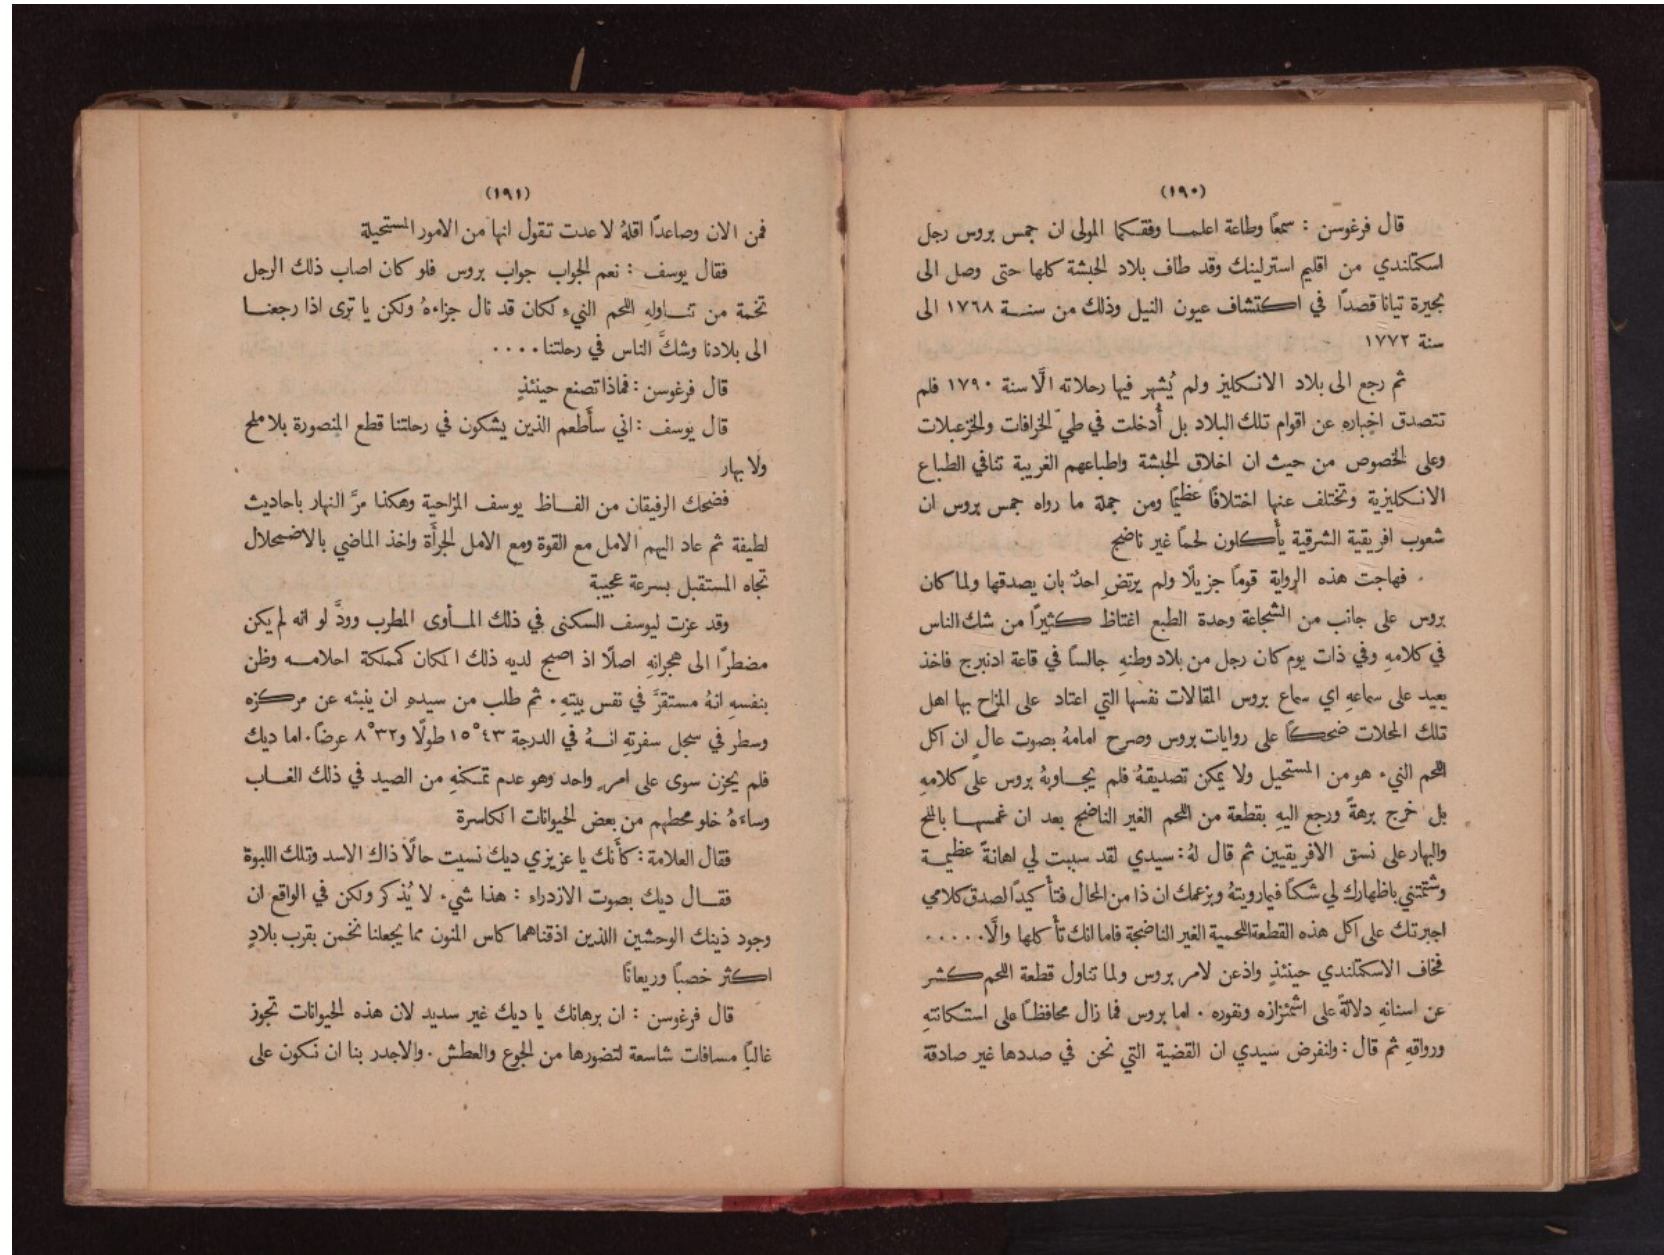 (١٩٠)
قال فرغوسن : سمعًا وطاعة اعلمــا وفقكما المولى ان جمس بروس رجل
اسكتلندي من اقليم استرلينك وقد طاف بلاد الحبشة كلها حتى وصل الى
بحيرة تيانا قصدًا في اكتشاف عيون النيل وذلك من سنــة ١٧٦٨ الى
سنة ١٧٧٢
ثم رجع الى بلاد الانكليز ولم يُشهر فيها رحلاته الَّا سنة ١٧٩٠ فلم
تتصدق اخباره عن اقوام تلك البلاد بل أُدخلت في طيّ الخرافات والخزعبلات
وعلى الخصوص من حيث ان اخلاق الحبشة واطباعهم الغريبة تنافي الطباع
الانكليزية وتختلف عنها اختلافًا عظيمًا ومن جملة ما رواه جمس بروس ان
شعوب افريقية الشرقية يأكلون لحمًا غير ناضج
فهاجت هذه الرواية قومًا جزيلًا ولم يرتضِ احدٌ بان يصدقها ولما كان
بروس على جانب من الشجاعة وحدة الطبع اغتاظ كثيرًا من شك الناس
في كلامهِ وفي ذات يوم كان رجل من بلاد وطنهِ جالسًا في قاعة ادنبرج فاخذ
يعيد على سماعهِ اي سماع بروس المقالات نفسها التي اعتاد على المزاح بها اهل
تلك المحلات ضحكًا على روايات بروس وصرح امامهُ بصوت عالٍ ان اكل
اللحم النيء هو من المستحيل ولا يمكن تصديقهُ فلم يجــاوبهُ بروس على كلامهِ
بل خرج برهةً ورجع اليهِ بقطعة من اللحم الغير الناضج بعد ان غمسهــا بالملح
والبهار على نسق الافريقيين ثم قال لهُ : سيدي لقد سببت لي اهانةً عظيمــة
وشتمتني باظهارك لي شكًا فيما رويتهُ وبزعمك ان ذا من المحال فتأكيدًا لصدق كلامي
اجبرتك على اكل هذه القطعة اللحمية الغير الناضجة فاما انك تأكلها والَّا .....
فخاف الاسكتلندي حينئذٍ واذعن لامر بروس ولما تناول قطعة اللحم كشر
عن اسنانهِ دلالةً على اشمئزازه ونفوره . اما بروس فما زال محافظًا على استكانتهِ
ورواقهِ ثم قال : ولنفرض سيدي ان القضية التي نحن في صددها غير صادقة
(١٩١)
فمن الان وصاعدًا اقلهُ لا عدت تقول انها من الامور المستحيلة
فقال يوسف : نعم الجواب جواب بروس فلو كان اصاب ذلك الرجل
تخمة من تنــاولهِ اللحم النيء لكان قد نال جزاءهُ ولكن يا ترى اذا رجعنــا
الى بلادنا وشكَّ الناس في رحلتنا ....
قال فرغوسن : فماذا تصنع حينئذٍ
قال يوسف : اني سأطعم الذين يشكون في رحلتنا قطع المنصورة بلا ملح
ولا بهار
فضحك الرفيقان من الفــاظ يوسف المزاحية وهكذا مرَّ النهار باحاديث
لطيفة ثم عاد اليهم الامل مع القوة ومع الامل الجرأَة واخذ الماضي بالاضمحلال
تجاه المستقبل بسرعة عجيبة
وقد عزت ليوسف السكنى في ذلك المــأوى المطرب وودَّ لو انه لم يكن
مضطرًا الى هجرانهِ اصلًا اذ اصبح لديه ذلك المكان كمملكة احلامــه وظن
بنفسهِ انهُ مستقرَّ في نفس بيتهِ . ثم طلب من سيده ان ينبئه عن مركزه
وسطر في سجل سفرتهِ انــهُ في الدرجة ٤٣ ْ١٥ طولًا و٣٢ ْ٨ عرضًا . اما ديك
فلم يحزن سوى على امرٍ واحد وهو عدم تمكنهِ من الصيد في ذلك الغــاب
وساءهُ خلو محطهم من بعض الحيوانات الكاسرة
فقال العلامة : كأَنك يا عزيزي ديك نسيت حالًا ذاك الاسد وتلك اللبوة
فقــال ديك بصوت الازدراء : هذا شيء لا يُذكر ولكن في الواقع ان
وجود ذينك الوحشين اللذين اذقناهما كاس المنون مما يجعلنا نخمن بقرب بلادٍ
اكثر خصبًا وريعانًا
قال فرغوسن : ان برهانك يا ديك غير سديد لان هذه الحيوانات تجوز
غالبًا مسافات شاسعة لتضورها من الجوع والعطش . والاجدر بنا ان نكون على